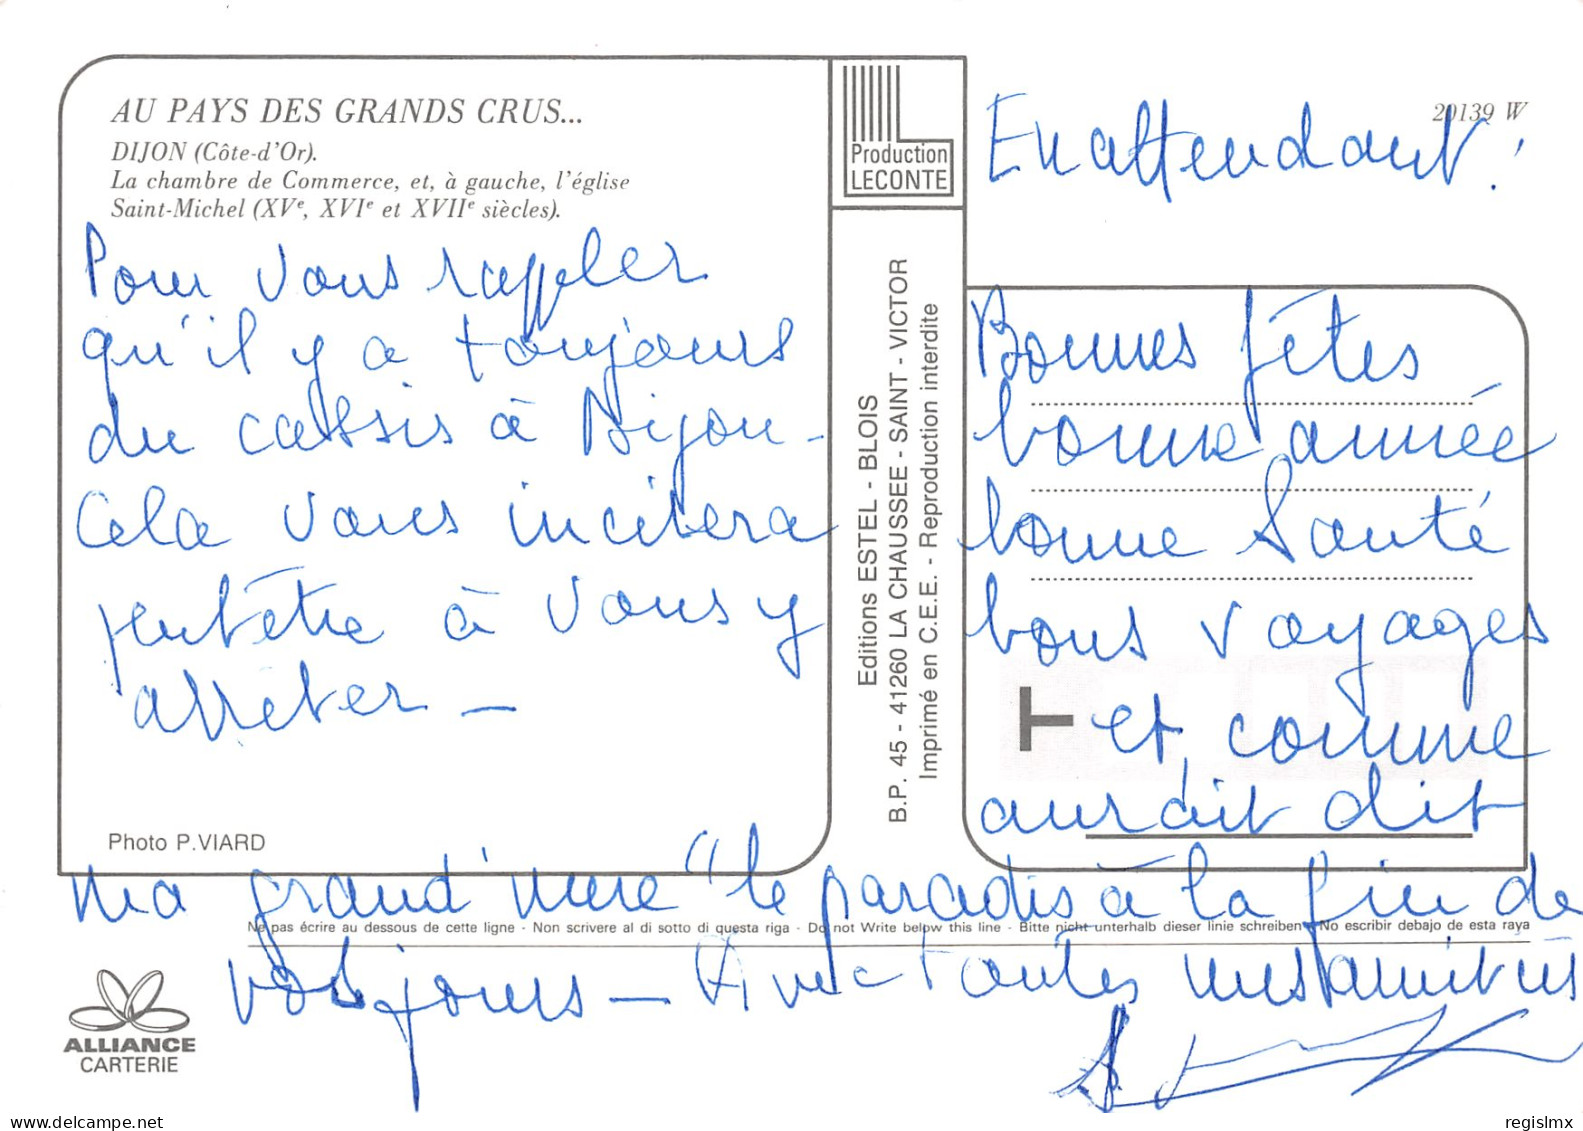 AU PAYS DES GRANDS CRUS...
DIJON (Côte-d'Or).
La chambre de Commerce, et, à gauche, l'église
Saint-Michel (XVe, XVIe et XVIIe siècles).
Pour vous rappler
qu'il y a toujours
du cassis à Dijon -
Cela vous incitera
peut-être à vous y
arrêter -
Photo P.VIARD
Production
LECONTE
Editions ESTEL - BLOIS
B.P. 45 - 41260 LA CHAUSSEE - SAINT - VICTOR
Imprimé en C.E.E. - Reproduction interdite
20139 W
En attendant !
Bonnes fêtes
bonne année
bonne Santé
bons voyages
et, comme
aurait dit
ma grand'mère "le paradis à la fin de
Ne pas écrire au dessous de cette ligne - Non scrivere al di sotto di questa riga - Do not Write below this line - Bitte nicht unterhalb dieser linie schreiben - No escribir debajo de esta raya
vos jours - Avec toutes mes amitiés
ALLIANCE
CARTERIE
www.delcampe.net
regislmx